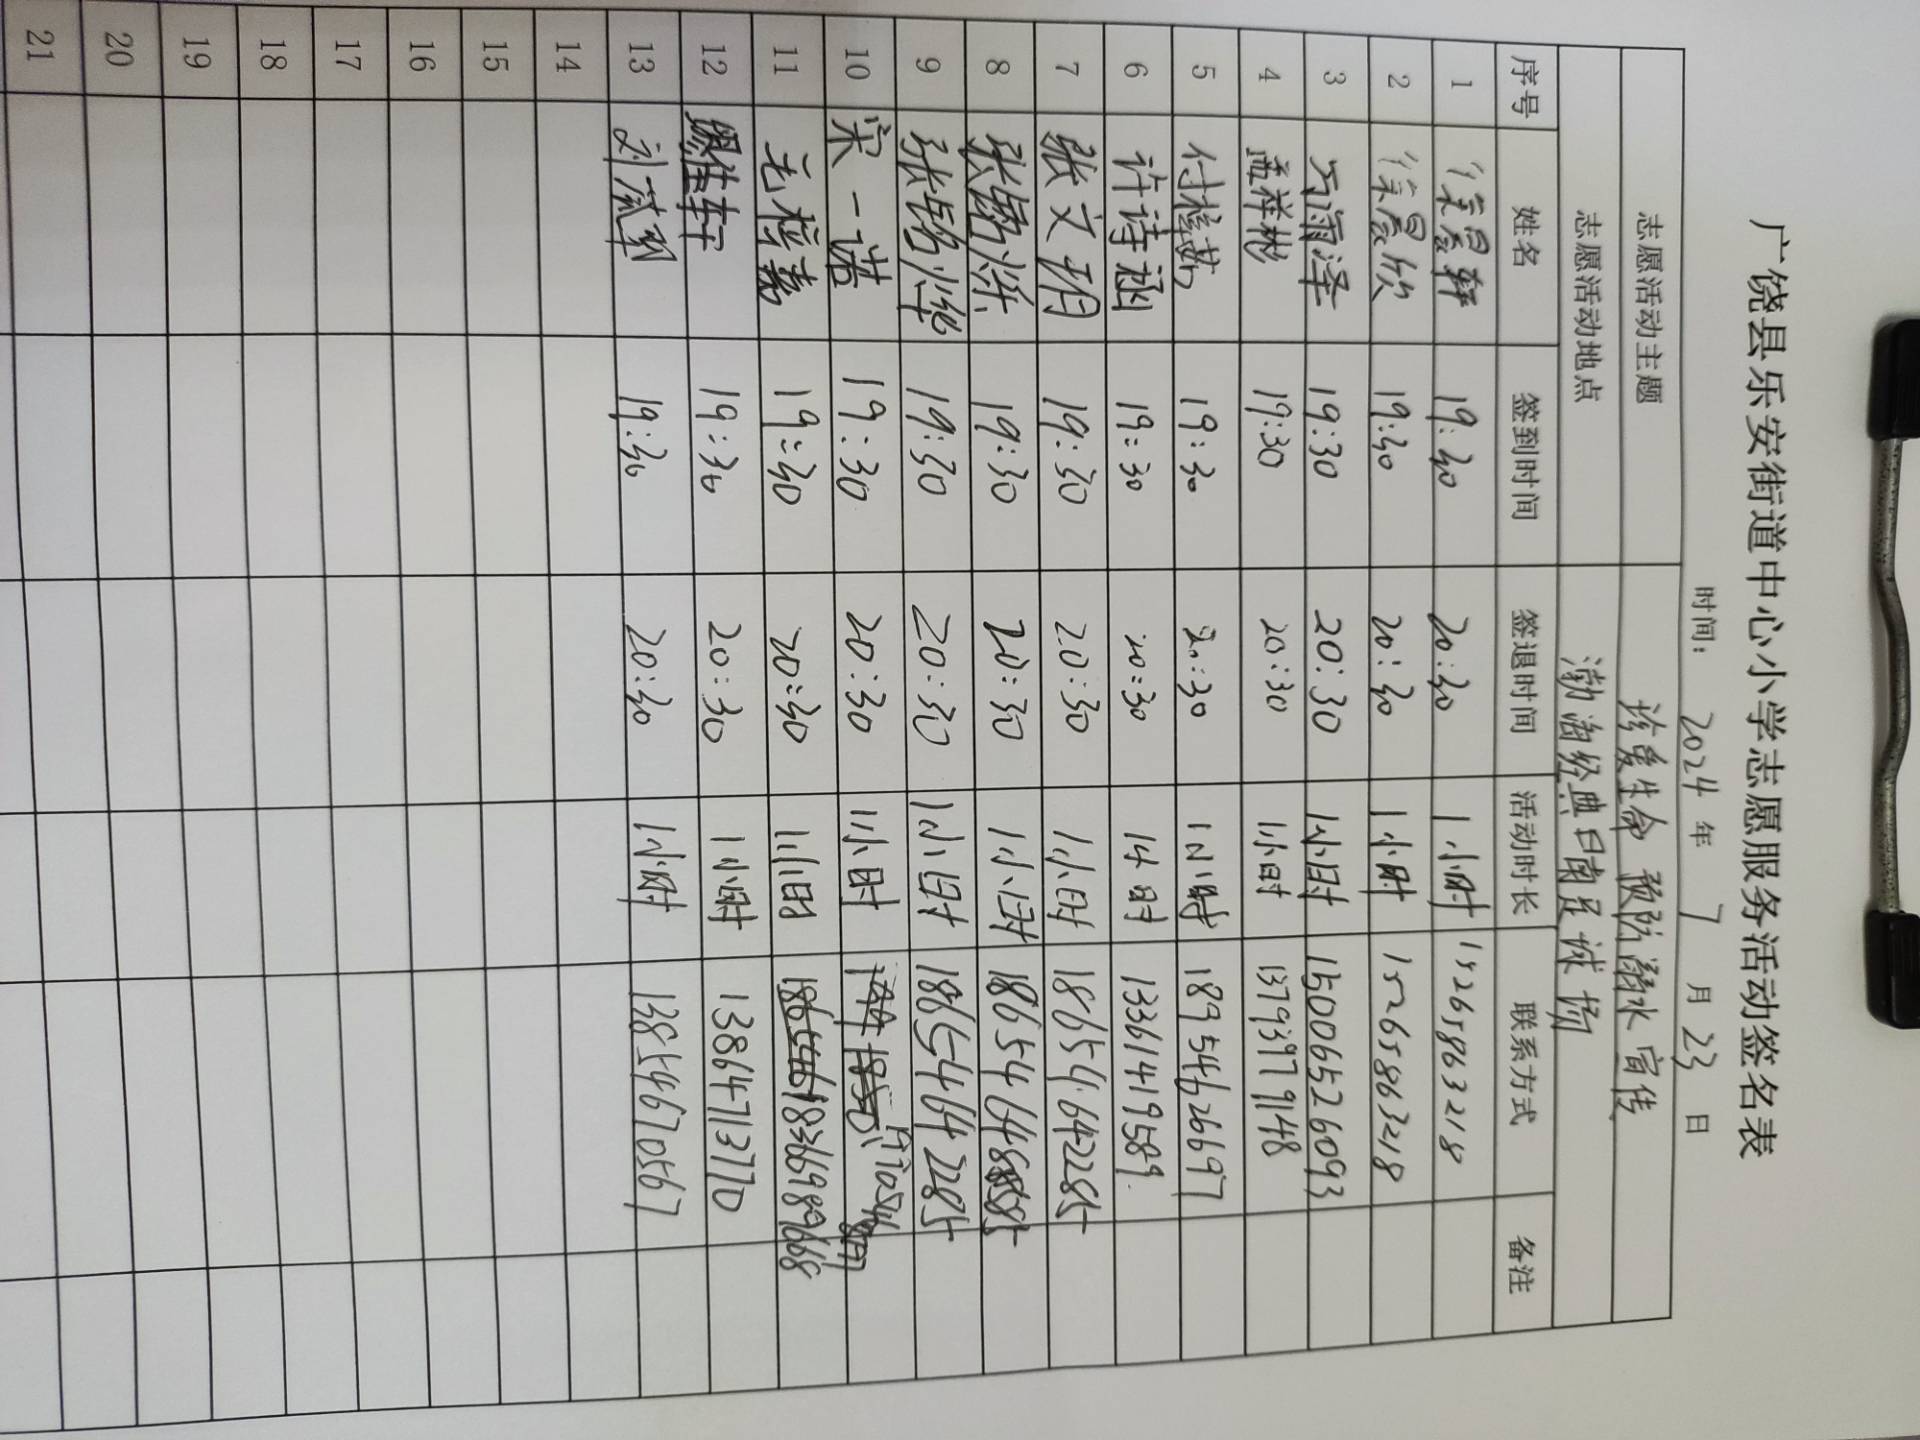 广饶县乐安街道中心小学志愿服务活动签名表
时间： 2024 年 7 月 23 日
志愿活动主题 珍爱生命 预防溺水 宣传
志愿活动地点 渤海经典日南足球场
序号 姓名 签到时间 签退时间 活动时长 联系方式 备注
1 徐晨轩 19:30 20:30 1小时 15265863218
2 徐晨欣 19:30 20:30 1小时 15265863218
3 万雨泽 19:30 20:30 1小时 15006526093
4 盖祥彬 19:30 20:30 1小时 13793979148
5 付 19:30 20:30 1小时 18954626697
6 许诗涵 19:30 20:30 1小时 13361419589
7 张文玥 19:30 20:30 1小时 18654642285
8 张 19:30 20:30 1小时
9 张 19:30 20:30 1小时 18654642285
10 宋一诺 19:30 20:30 1小时
11 19:30 20:30 1小时 18366989668
12 19:30 20:30 1小时 13864713770
13 刘 19:30 20:30 1小时 13854670567
14
15
16
17
18
19
20
21